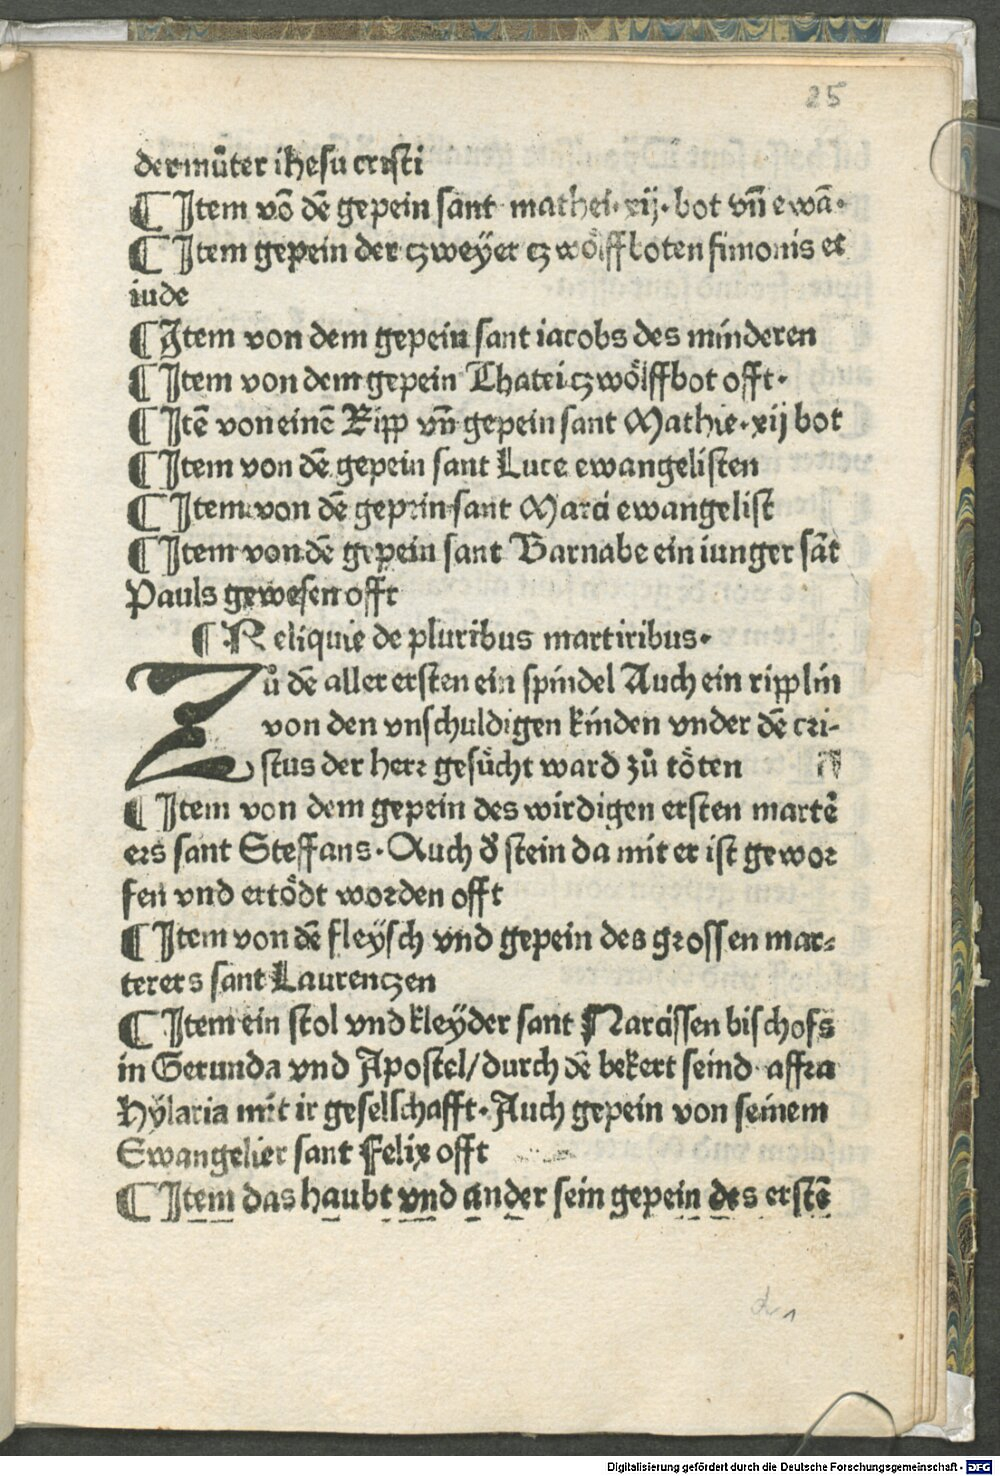 25
der můter ihesu cristi
¶ Item võ dē gepein sant mathei·xij·bot vñ ewā·
¶ Item gepein der czweÿer czwölffboten simonis et
iude
¶ Item von dem gepein sant iacobs des minderen
¶ Item von dem gepein Thatei czwölffbot offt·
¶ Itē von einē Ripp vñ gepein sant Mathie·xij bot
¶ Item von dē gepein sant Luce ewangelisten
¶ Item von dē gepein sant Marci ewangelist
¶ Item von dē gepein sant Barnabe ein iunger sāt
Pauls gewesen offt
¶ Reliquie de pluribus martiribus·
Zů dē aller ersten ein spindel Auch ein ripplin
von den vnschuldigen kinden vnder dē cri-
stus der herr gesůcht ward zů töten
¶ Item von dem gepein des wirdigen ersten martē
ers sant Steffans·Auch d̕ stein da mit er ist gewor
fen vnd ertödt worden offt
¶ Item von dē fleÿsch vnd gepein des grossen mar⸗
terers sant Laurenczen
¶ Item ein stol vnd kleÿder sant Narcissen bischofs
in Gerunda vnd Apostel/durch dē bekert seind affra
Hÿlaria mit ir geselschafft·Auch gepein von seinem
Ewangelier sant Felix offt
¶ Item das haubt vnd ander sein gepein des erstē
d 1
Digitalisierung gefördert durch die Deutsche Forschungsgemeinschaft - DFG